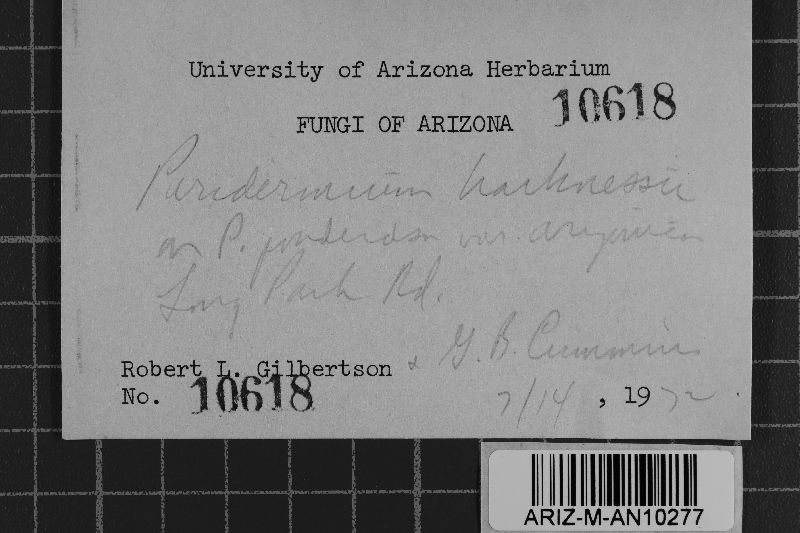 University of Arizona Herbarium
10618
FUNGI OF ARIZONA
Peridermium harknessii
on P. ponderosa var. arizonica
Long Park Rd.
Robert L. Gilbertson & G. B. Cummins
No. 10618
7/14, 1972
ARIZ-M-AN10277